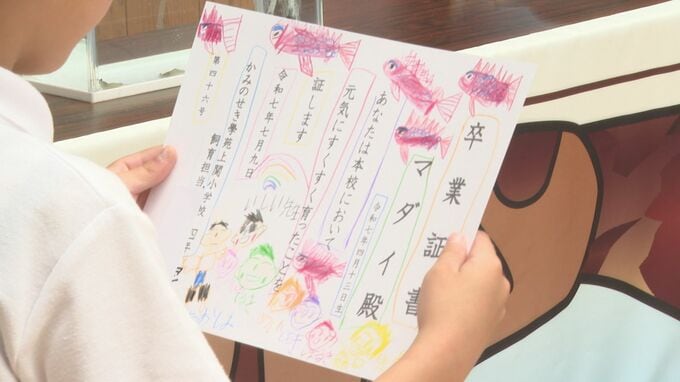 卒業証書
マダイ殿
令和七年四月十三日生
あなたは本校において
元気にすくすく育ったことを
証します
令和七年七月九日
かみのせき學苑上関小学校
飼育担当
第四十六号